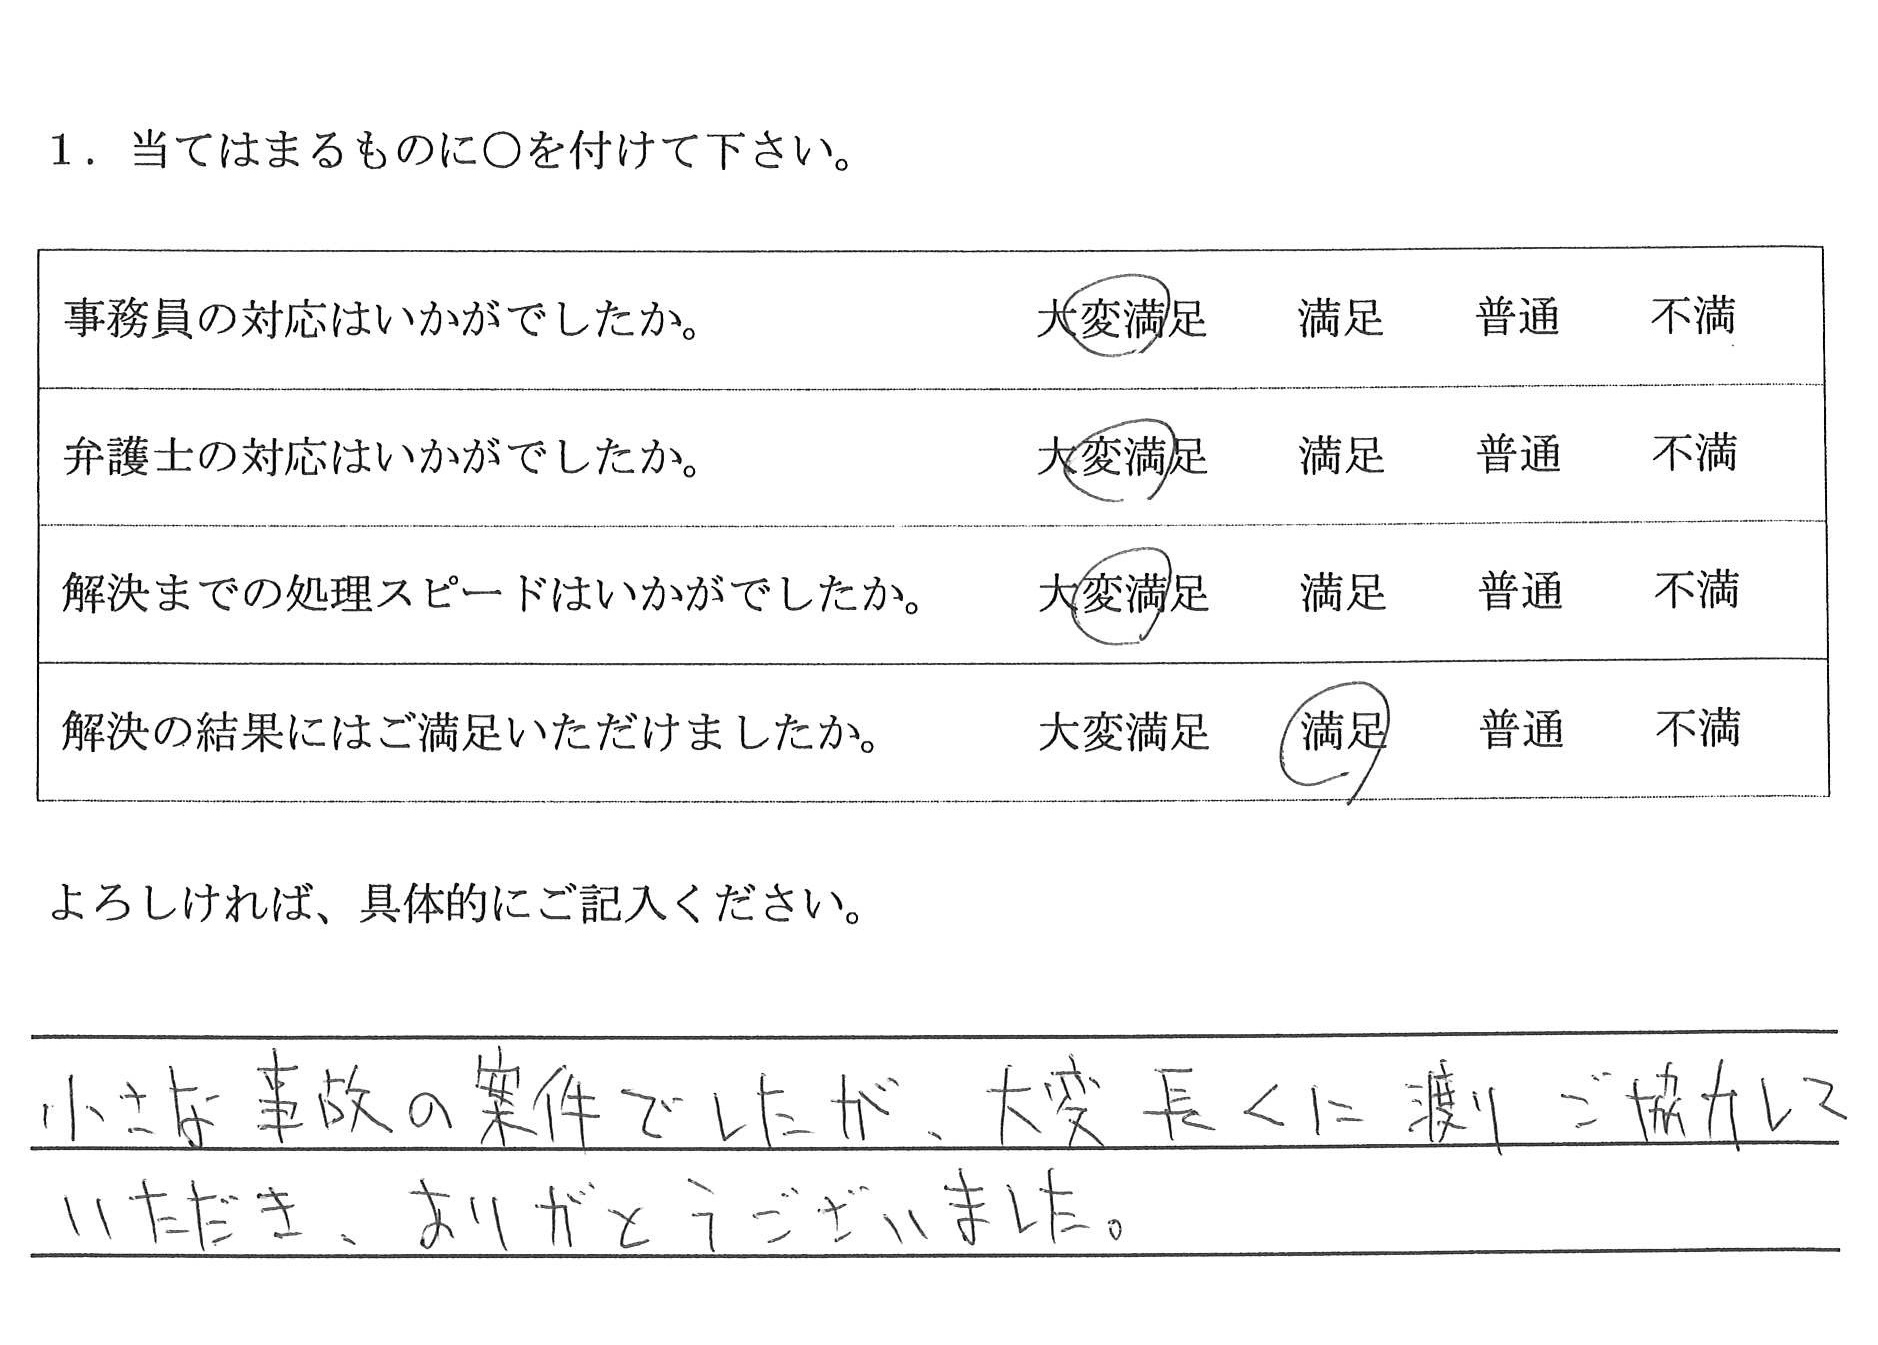 1．当てはまるものに〇を付けて下さい。
事務員の対応はいかがでしたか。 大変満足 満足 普通 不満
弁護士の対応はいかがでしたか。 大変満足 満足 普通 不満
解決までの処理スピードはいかがでしたか。 大変満足 満足 普通 不満
解決の結果にはご満足いただけましたか。 大変満足 満足 普通 不満
よろしければ、具体的にご記入ください。
小さな事故の案件でしたが、大変長くに渡りご協力して
いただき、ありがとうございました。